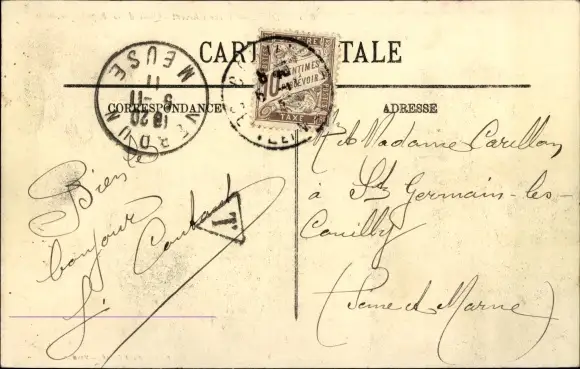 CARTE POSTALE
CORRESPONDANCE
ADRESSE
VERDUN
MEUSE
18 20
9-11
11
10
CENTIMES
PERCEVOIR
TAXE
T.
Bien le
bonjour
Coutant
Mr et Madame Carillon
à St Germain-les-
Couilly
(Seine et Marne)